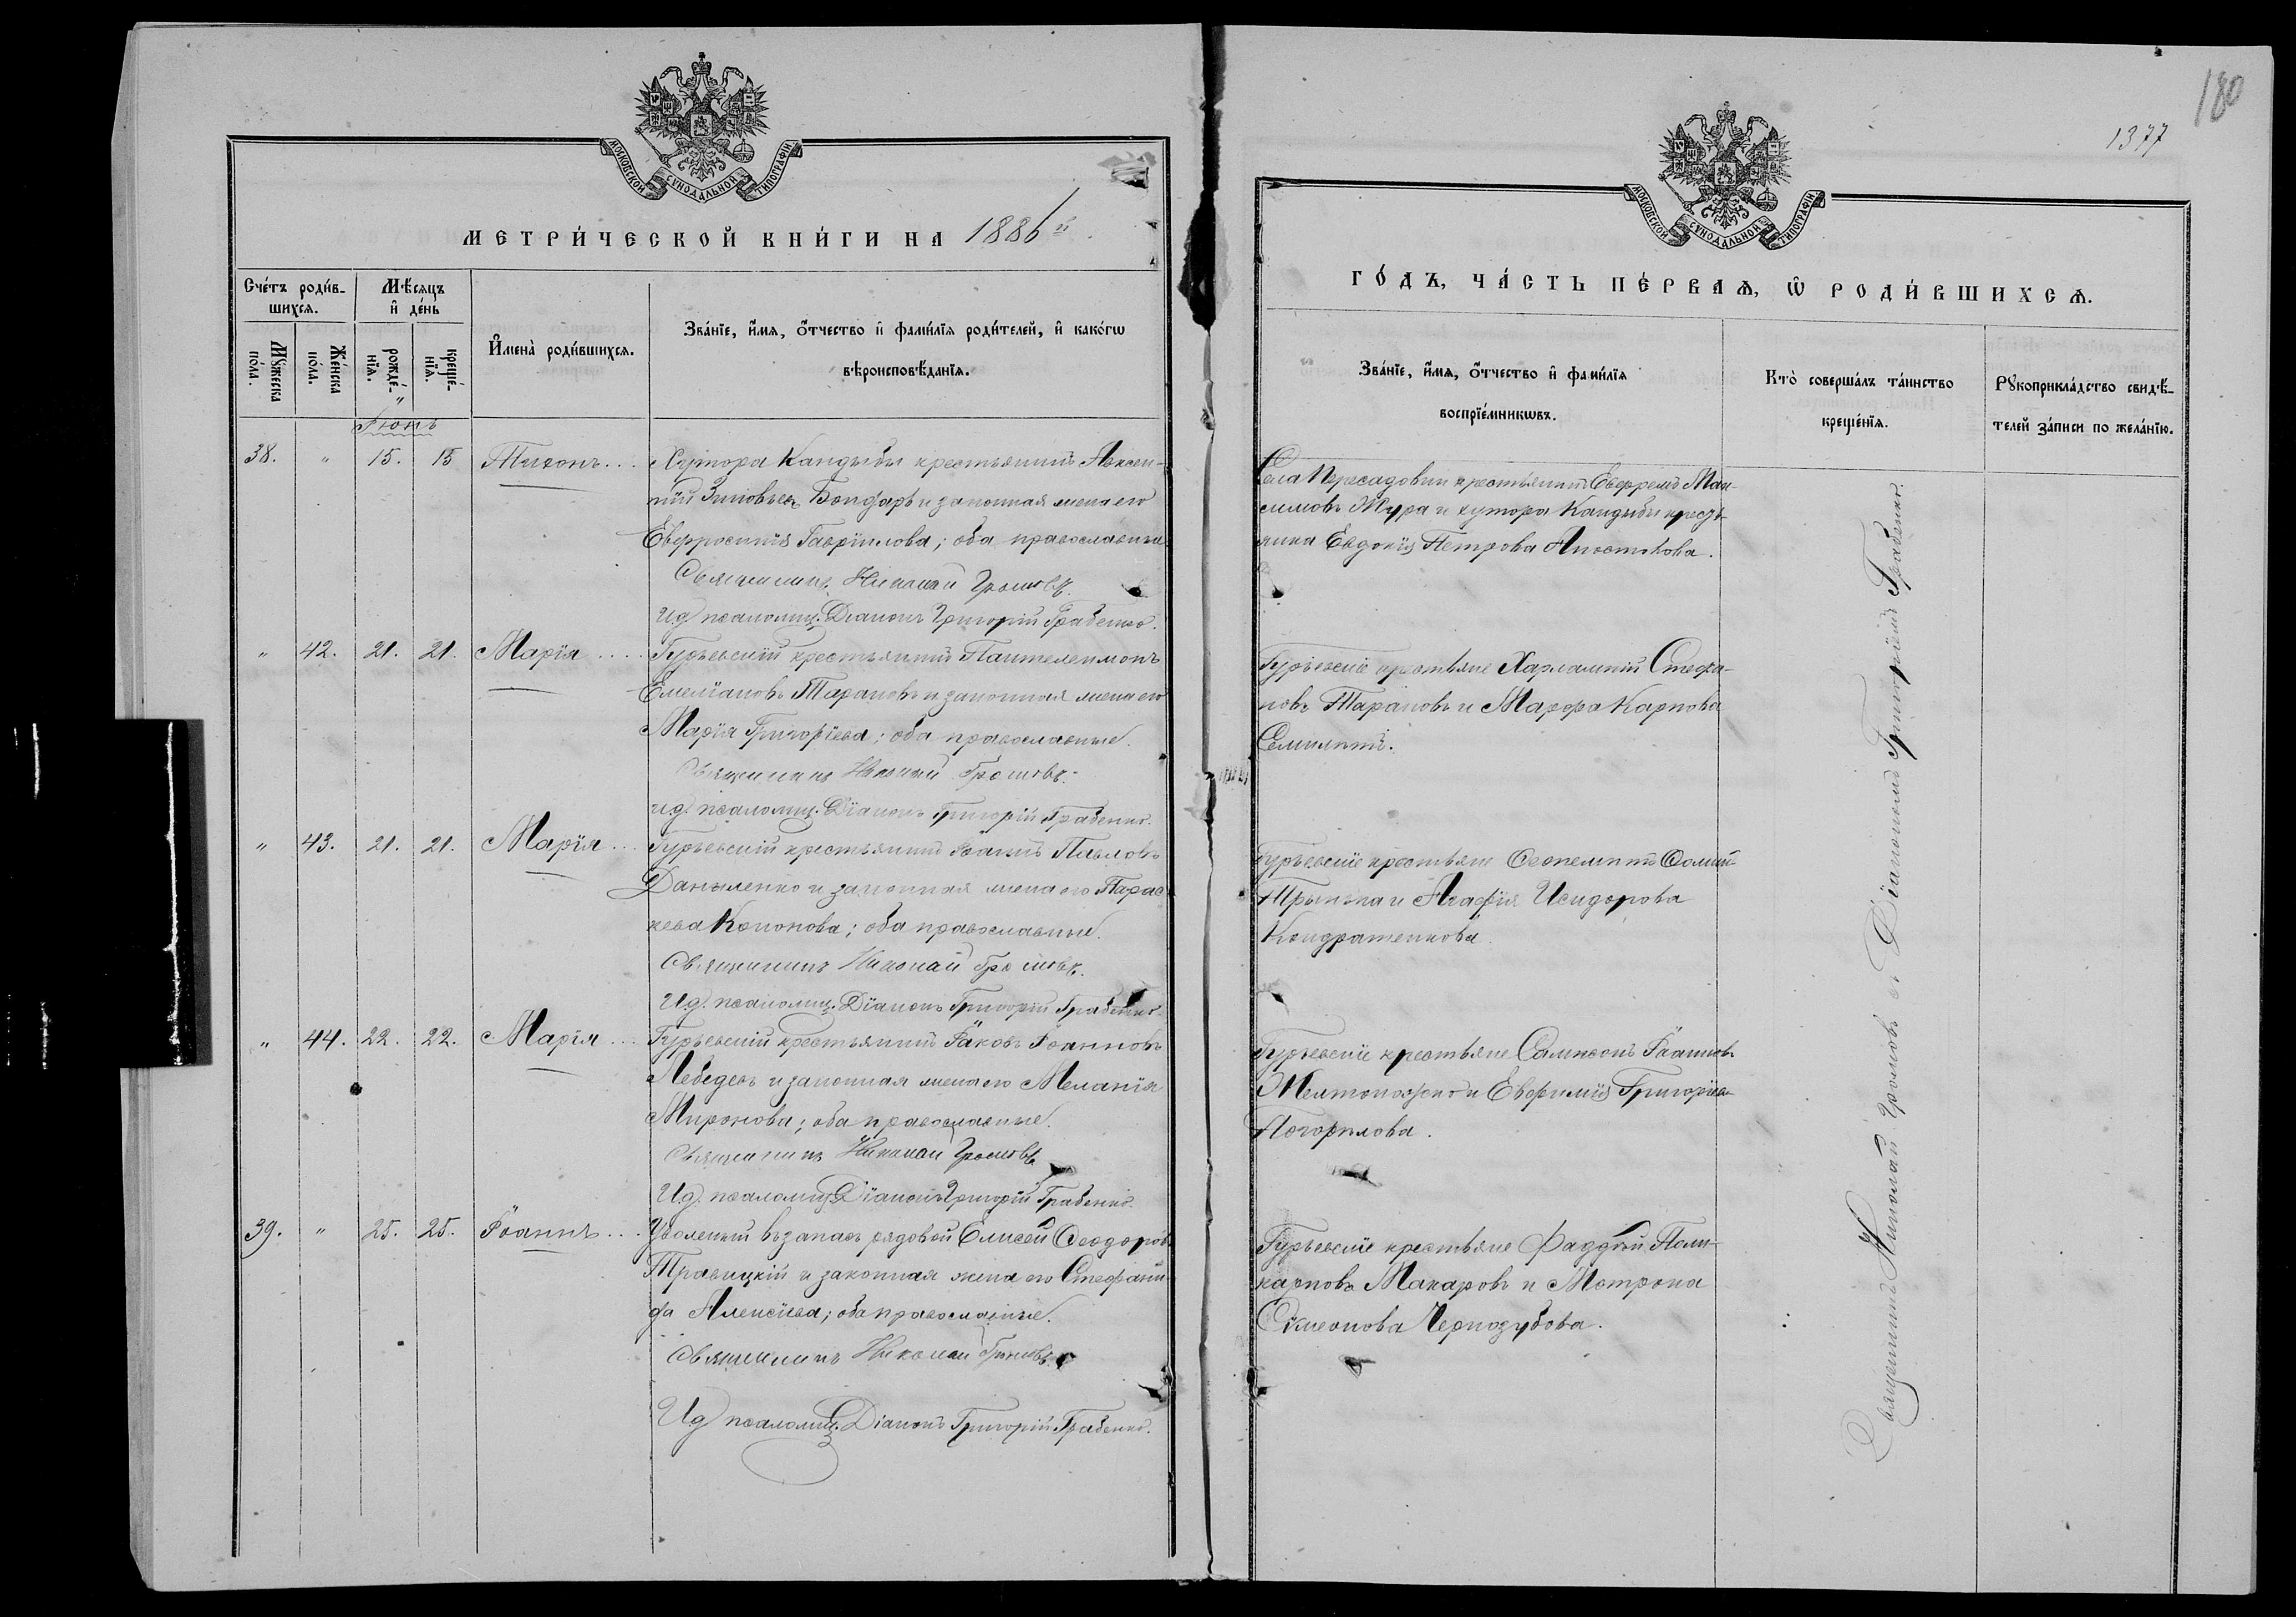 МОСКОВСКОЙ СѴНОДАЛЬНОЙ ТИПОГРАФІИ
МЕТРИ́ЧЕСКОЙ КНИ́ГИ НА 1886й
Сче́тъ роди́в-
шихсѧ.
Мѣ́сѧцъ
и҆ де́нь
И҆мена̀ роди́вшихсѧ.
Зва́нїе, и҆́мѧ, ѻ҆́тчество и҆ фами́лїѧ роди́телей, и҆ како́гѡ
вѣроисповѣ́данїѧ.
Мꙋ́жеска
по́ла.
Же́нска
по́ла.
рожде́-
нїѧ.
креще́-
нїѧ.
Іюнь
38. " 15. 15 Тихонъ... Хутора Кандыбы крестьянинъ Авксен-
тій Зиновьевъ Бондарь и законная жена его
Евфросинія Гавріилова; оба православные
Священникъ Николай Громовъ.
Ид. псаломщ. Діаконъ Григорій Грабенко.
" 42. 21. 21. Марія.... Гурьевскій крестьянинъ Пантелеимонъ
Емеліановъ Тарановъ и законная жена его
Марія Григоріева; оба православные.
Священникъ Николай Громовъ.
ид. псаломщ. Діаконъ Григорій Грабенко.
" 43. 21. 21. Марія... Гурьевскій крестьянинъ Іоаннъ Павловъ
Даныленко и законная жена его Парас-
кева Кононова; оба православные.
Священникъ Николай Громовъ.
Ид. псаломщ. Діаконъ Григорій Грабенко.
" 44. 22. 22. Марія... Гурьевскій крестьянинъ Іаковъ Іоанновъ
Лебедевъ и законная жена его Меланія
Миронова; оба православные.
Священникъ Николай Громовъ
Ид. псаломщ. Діаконъ Григорій Грабенко.
39. " 25. 25. Іоаннъ... Уволеный въ запасъ рядовой Елисей Ѳеодоровъ
Травицкій и законная жена его Стефани-
да Алексіева; оба православные.
Священникъ Николай Громовъ.
Ид псаломщ. Діаконъ Григорій Грабенко.
180
1377
МОСКОВСКОЙ СѴНОДАЛЬНОЙ ТИПОГРАФІИ
ГО́ДЪ, ЧА́СТЬ ПЕ́РВАѦ, Ѡ҆ РОДИ́ВШИХСѦ.
Зва́нїе, и҆́мѧ, ѻ҆́тчество и҆ фами́лїѧ
воспрїе́мникѡвъ.
Кто̀ соверша́лъ та́инство
креще́нїѧ.
Рꙋкоприкла́дство свидѣ́-
телей за́писи по жела́нїю.
Села Пересадовки крестьянинъ Евфремъ Мак-
симовъ Жура и хутора Кандыбы кресть-
янка Евдокія Петрова Апостолова.
Гурьевскіе крестьяне Харлампій Стефа-
новъ Тарановъ и Марфа Карпова
Гурьевскіе крестьяне
и Агафія Исидорова
Кондратенкова.
Гурьевскіе крестьяне Сампсонъ Іоанновъ
Желтоножко и Евфимія Григоріева
Погорѣлова.
Гурьевскіе крестьяне Фаддей Поли-
карповъ Макаровъ и Мотрона
Симеонова Чернозубова.
Священникъ Николай Громовъ съ Діакономъ Григоріемъ Грабенко.